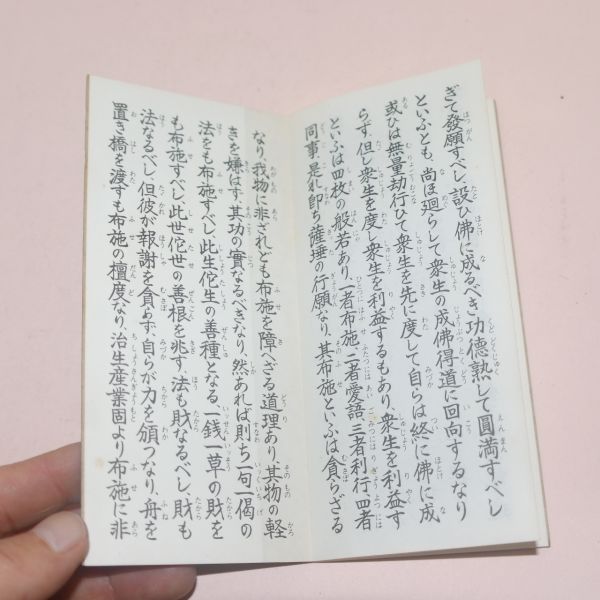 ぎて發願すべし、設ひ佛に成るべき功德熟して圓滿すべし
といふとも、尚ほ廻らして衆生の成佛得道に回向するなり
或ひは無量劫行ひて衆生を先に度して、自らは終に佛に成
らず、但し衆生を度し衆生を利益するもあり、衆生を利益す
といふは四枚の般若あり、一者布施、二者愛語、三者利行、四者
同事、是れ即ち薩埵の行願なり、其布施といふは貪らざる
なり、我物に非ざれども布施を障へざる道理あり、其物の輕
きを嫌はず、其功の實なるべきなり、然あれば則ち一句一偈の
法をも布施すべし、此生佗生の善種となる、一錢一草の財を
も布施すべし、此世佗世の善根を兆す、法も財なるべし、財も
法なるべし、但彼が報謝を貪らず、自らが力を頒つなり、舟を
置き橋を渡すも布施の檀度なり、治生產業固より布施に非